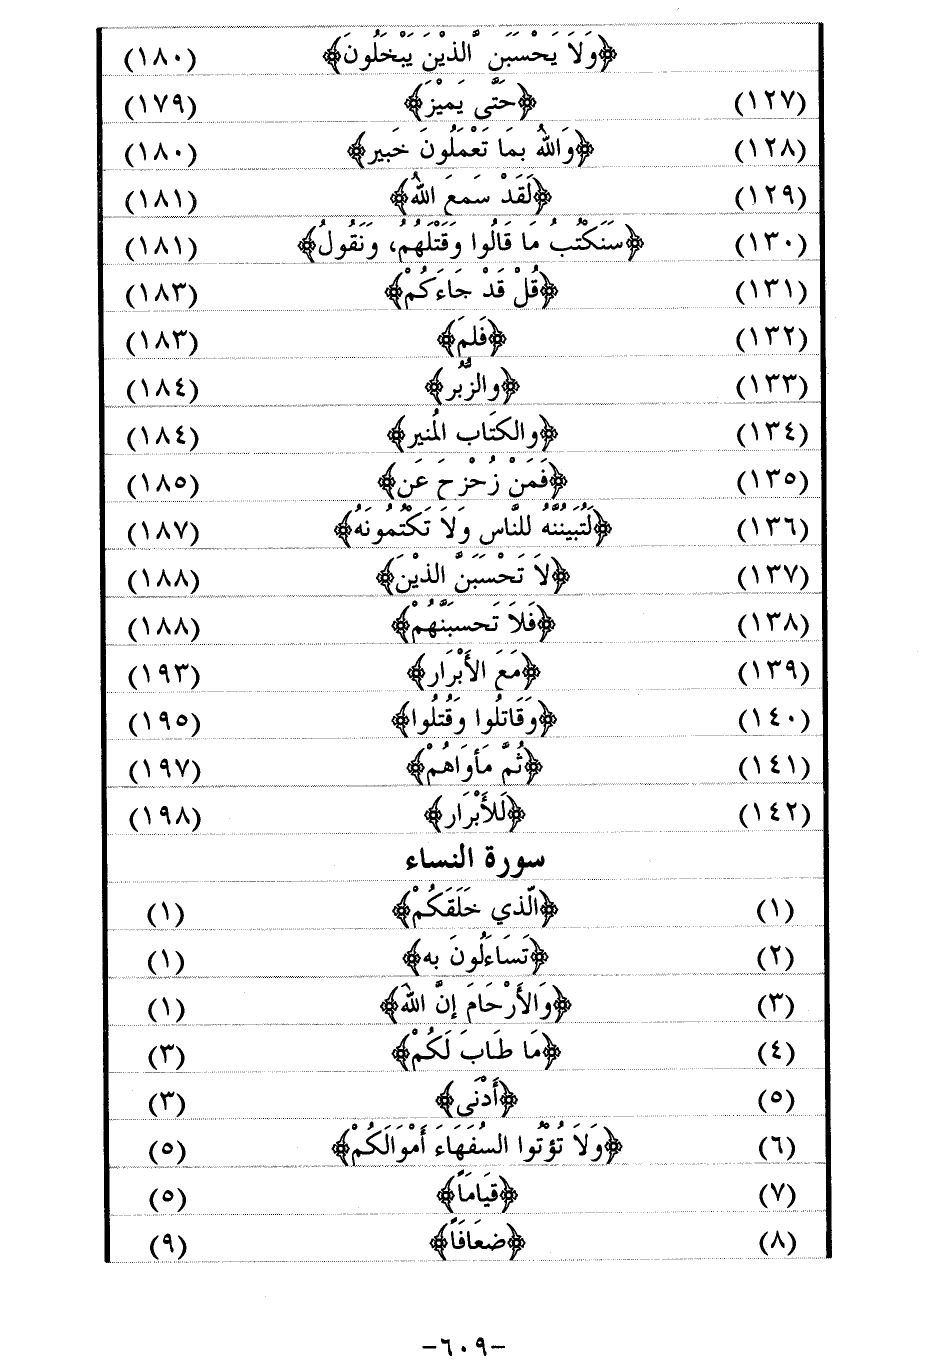 ﴿وَلاَ يَحْسَبَن َّالذيْنَ يَبْخَلُونَ﴾ (١٨٠)
(١٢٧) ﴿حَتَّى يَميْزَ﴾ (١٧٩)
(١٢٨) ﴿وَاللهُ بمَا تَعْمَلُونَ خَبير﴾ (١٨٠)
(١٢٩) ﴿لَقَدْ سَمعَ اللهُ﴾ (١٨١)
(١٣٠) ﴿سَنَكْتُبُ مَا قَالُوا وَقَتْلَهُمُ، وَنَقُولُ﴾ (١٨١)
(١٣١) ﴿قُلْ قَدْ جَاءَكُمْ﴾ (١٨٣)
(١٣٢) ﴿فَلمَ﴾ (١٨٣)
(١٣٣) ﴿والزُّبُر﴾ (١٨٤)
(١٣٤) ﴿والكتَاب المُنير﴾ (١٨٤)
(١٣٥) ﴿فَمَنْ زُحْزحَ عَن﴾ (١٨٥)
(١٣٦) ﴿لَتُبَيننَّهُ للنَّاس وَلاَ تَكْتُمُونَهُ﴾ (١٨٧)
(١٣٧) ﴿لاَ تَحْسَبَنَّ الذيْنَ﴾ (١٨٨)
(١٣٨) ﴿فَلاَ تَحسبَنَّهُمْ﴾ (١٨٨)
(١٣٩) ﴿مَعَ الأَبْرَار﴾ (١٩٣)
(١٤٠) ﴿وَقَاتلُوا وَقُتلُوا﴾ (١٩٥)
(١٤١) ﴿ثُمَّ مَأوَاهُمْ﴾ (١٩٧)
(١٤٢) ﴿لَلأَبْرَار﴾ (١٩٨)
سورة النساء
(١) ﴿الّذي خَلَقَكُمْ﴾ (١)
(٢) ﴿تَسَاءَلُونَ به﴾ (١)
(٣) ﴿وَالأَرْحَامَ إنَّ اللهَ﴾ (١)
(٤) ﴿مَا طَابَ لَكُمْ﴾ (٣)
(٥) ﴿أَدْنَى﴾ (٣)
(٦) ﴿وَلاَ تُؤتُوا السُفَهَاءَ أَمْوَالَكُمْ﴾ (٥)
(٧) ﴿قيَامَاً﴾ (٥)
(٨) ﴿ضعَافَاً﴾ (٩)
-٦٠٩-